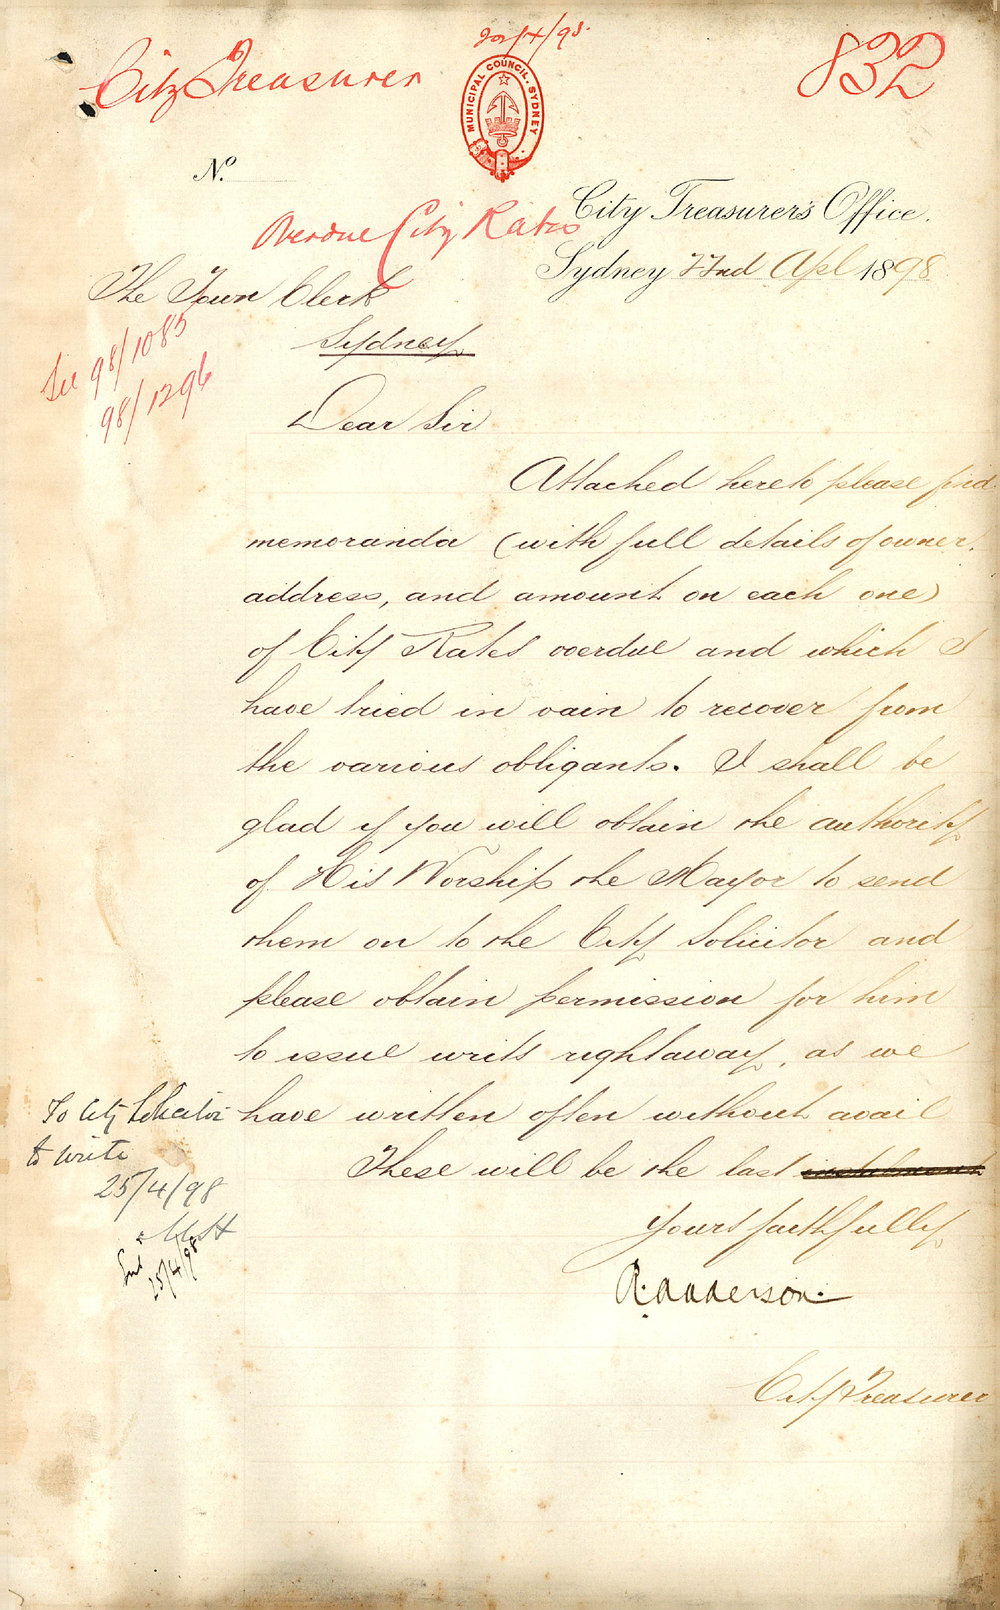 22/4/98.
City Treasurer
832
MUNICIPAL COUNCIL. SYDNEY
No.
City Treasurer's Office.
Overdue City Rates
Sydney 22nd Apl 1898
The Town Clerk
Sydney
See 98/1085
98/1296
Dear Sir
Attached hereto please find
memoranda (with full details of owner,
address, and amount on each one)
of City Rates overdue and which I
have tried in vain to recover from
the various obligants. I shall be
glad if you will obtain the authority
of His Worship the Mayor to send
them on to the City Solicitor and
please obtain permission for him
to issue writs rightaway, as we
have written often without avail
To City Solicitor
to write
25/4/98
25/4/98
These will be the last instalment
Yours faithfully
City Treasurer